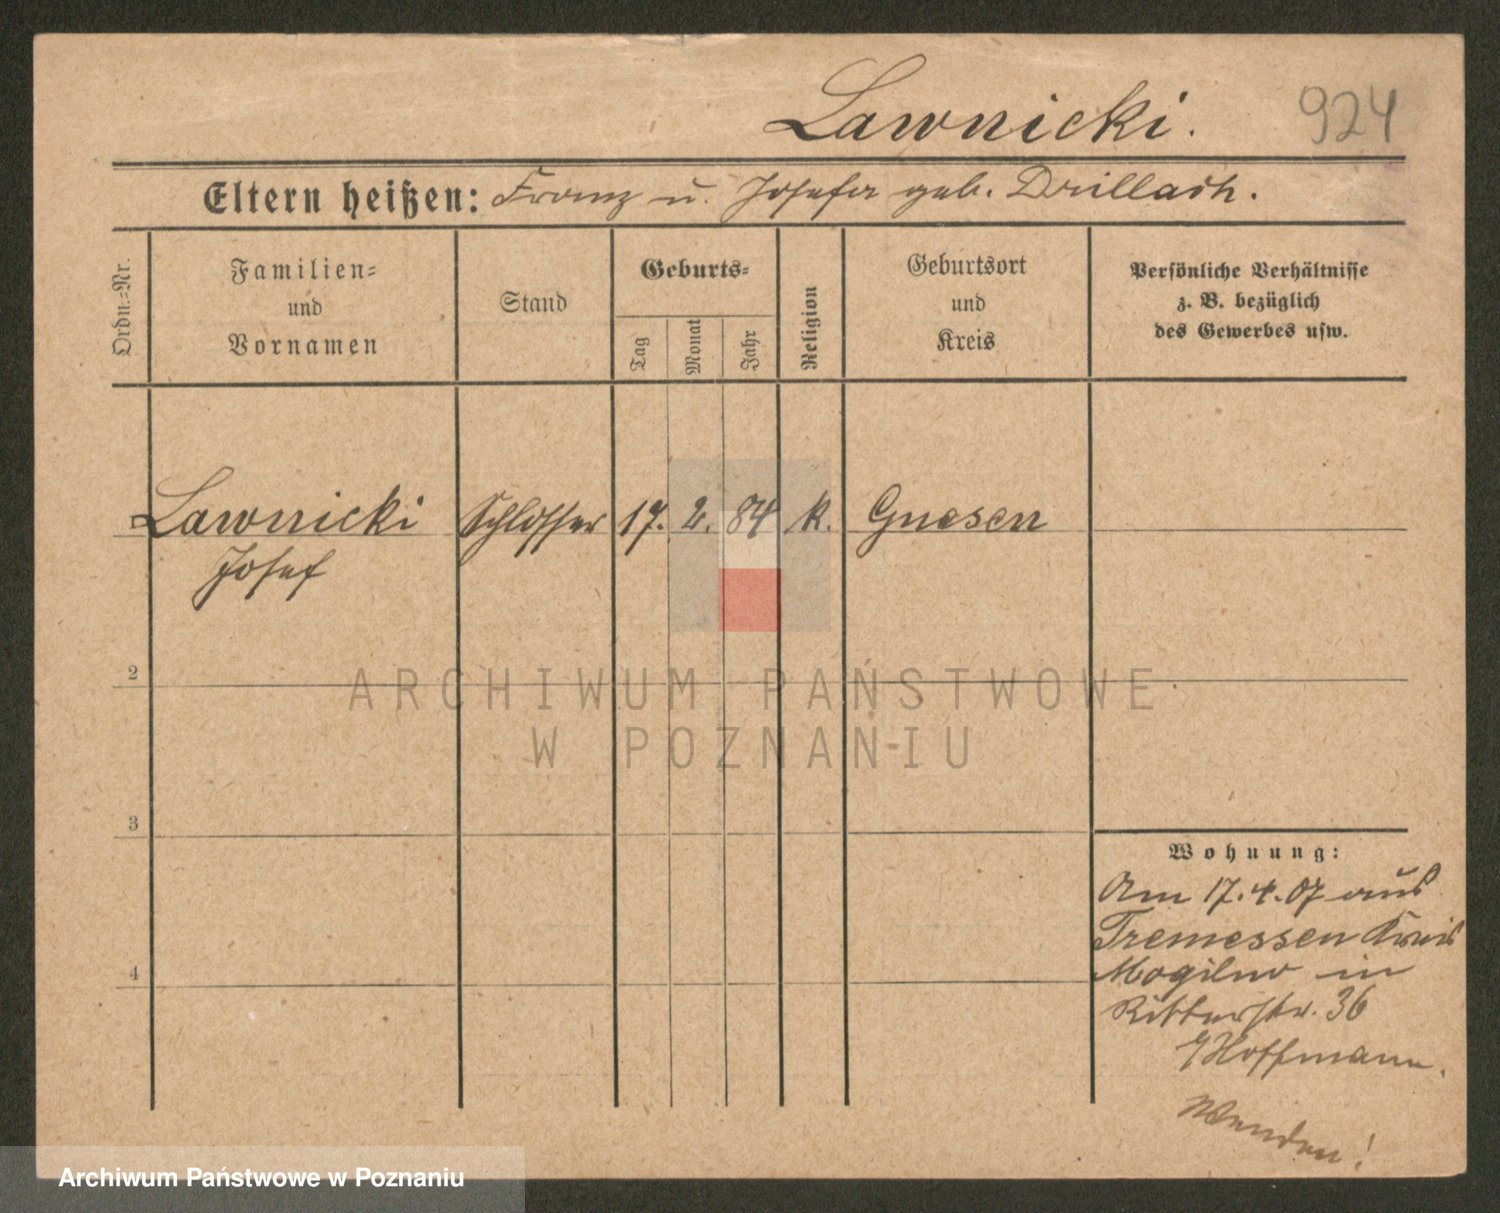 Lawnicki.
924
Eltern heißen: Franz u. Josefa geb. Drillach.
Ordn.-Nr.
Familien-
und
Vornamen
Stand
Geburts-
Tag
Monat
Jahr
Religion
Geburtsort
und
Kreis
Persönliche Verhältnisse
z. B. bezüglich
des Gewerbes usw.
Lawnicki Schlosser 17. 2. 84 k. Gnesen
Josef
2
ARCHIWUM PAŃSTWOWE
W POZNANIU
3
Wohnung:
Am 17.4.07 aus
Tremessen Kreis
Mogilno in
4
Ritterstr. 36
Hoffmann.
Wenden!
Archiwum Państwowe w Poznaniu